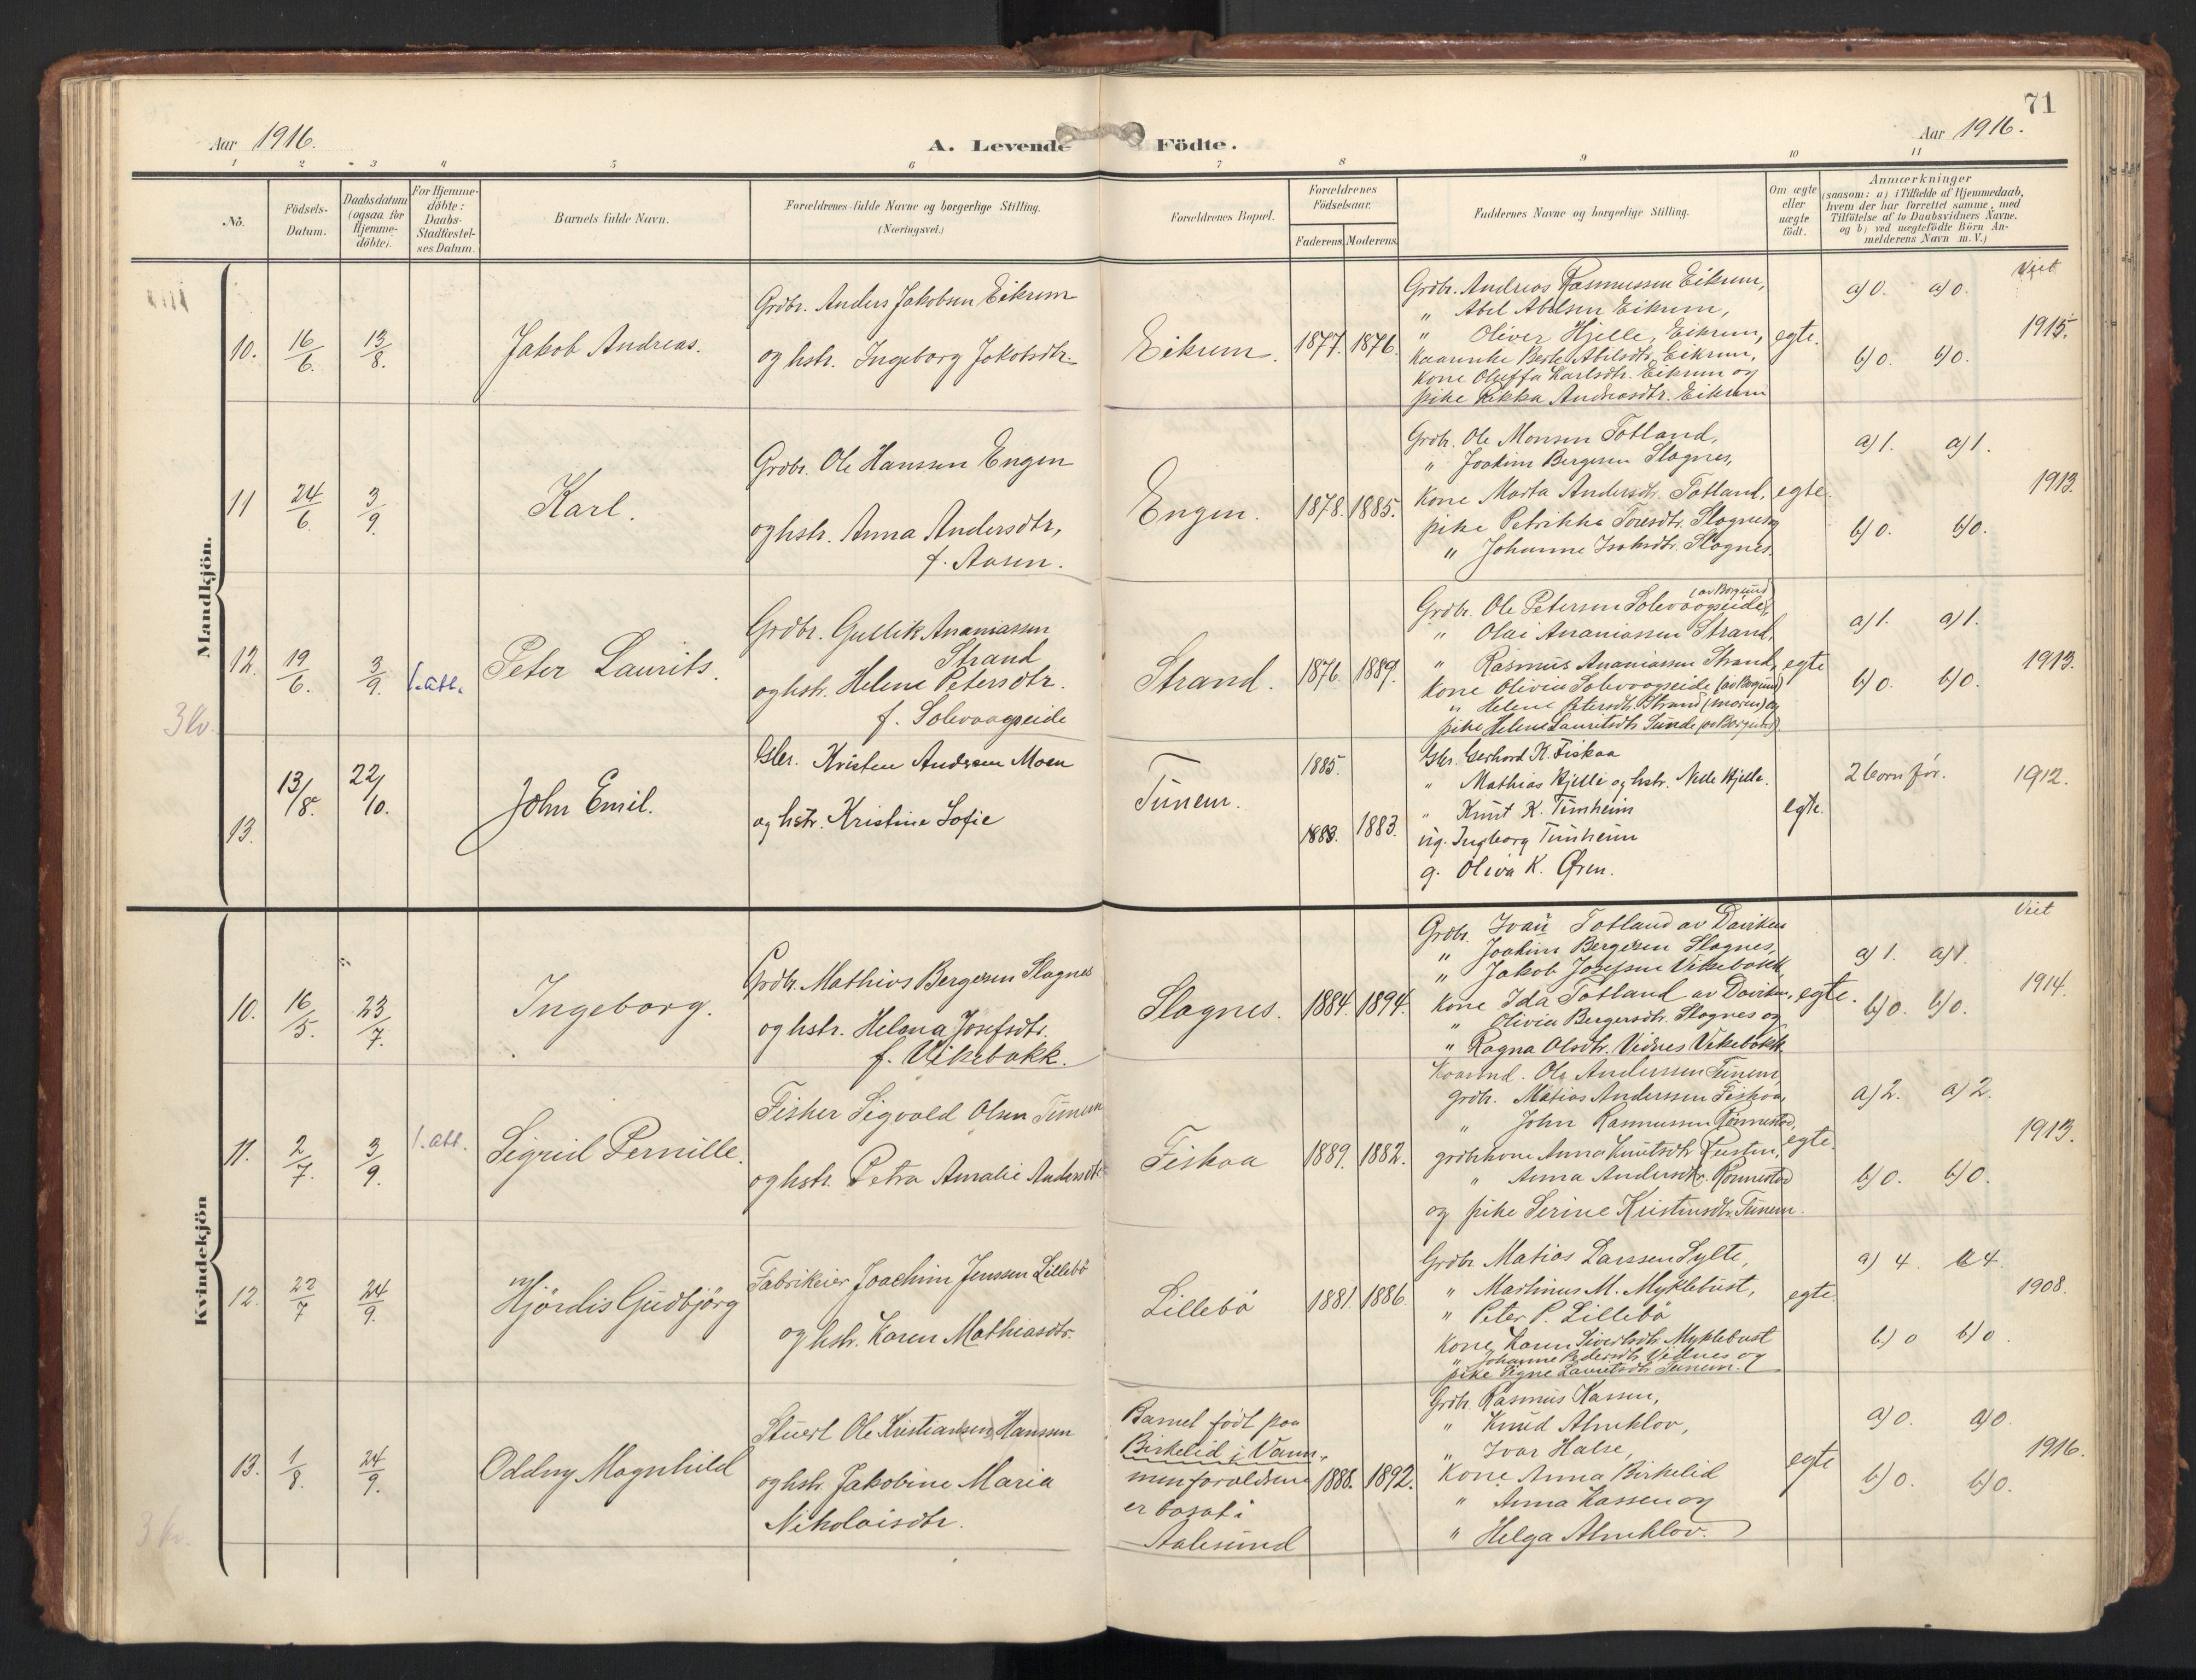 71
Aar 1916.
A. Levende Födte.
Aar 1916.
1 2 3 4 5 6 7 8 9 10 11
No.
Födsels-
Datum.
Daabsdatum
(ogsaa for
Hjemme-
döbte).
For Hjemme-
döbte:
Daabs-
Stadfæstel-
ses Datum.
Barnets fulde Navn.
Forældrenes fulde Navne og borgerlige Stilling.
(Næringsvei.)
Forældrenes Bopæl.
Forældrenes
Födselsaar.
Faderens. Moderens.
Faddernes Navne og borgerlige Stilling.
Om ægte
eller
uægte
födt.
Anmærkninger
(saasom: a) i Tilfælde af Hjemmedaab,
hvem der har forrettet samme, med
Tilföielse af to Daabsvidners Navne.
og b) ved uægtefödte Börn An-
melderens Navn m. V.)
Mandkjön.
10.
16/6.
13/8.
Jakob Andreas.
Grdbr. Anders Jakobsen Eikrem
og hstr. Ingeborg Jakobsdtr.
Eikrem.
1877. 1876.
Grdbr. Andreas Rasmussen Eikrem,
" Abel Abelsen Eikrem,
" Oliver Hjelle, Eikrem,
Kaarenke Berte Abelsdtr. Eikrem,
Kone Oluffa Karlsdtr. Eikrem og
pike Rikka Andreasdtr. Eikrem
egte.
a) 0. a) 0.
b) 0. b) 0.
Viet
1915.
11
24/6.
3/9.
Karl.
Grdbr. Ole Hanssen Engen
og hstr. Anna Andersdtr,
f. Aasen.
Engen.
1878. 1885.
Grdbr. Ole Monsen Totland,
" Joakim Bergesen Slagnes,
Kone Marta Andersdtr. Totland,
pike Petrikka Toresdtr. Slagnes og
" Johanne Isaksdtr. Slagnes.
egte.
a) 1. a) 1.
b) 0. b) 0.
1913.
12.
19/6.
3/9.
1. att.
Peter Laurits.
Grdbr. Gullik Ananiassen
Strand
og hstr. Helene Petersdtr.
f. Solevaagseide
Strand.
1876. 1889.
(av Borgund)
Grdbr. Ole Petersen Solevaagseide,
" Olai Ananiassen Strand,
" Rasmus Ananiassen Strand,
Kone Olivia Solevaagseide (av Borgund)
" Helene Petersdtr. Strand (moren) og
pike Helene Lauritsdtr. Sunde (av Borgund).
egte
a) 1. a) 1.
b) 0. b) 0.
1913.
3 kv.
13.
13/8.
22/10.
John Emil.
Gbr. Kristen Andersen Moen
og hstr. Kristine Sofie
Tunem.
1885.
1883. 1883.
Gbr. Gerhard K. Fiskaa
" Mathias Hjelle og hstr. Nelle Hjelle.
" Knut K. Tunheim
ug. Ingeborg Tunheim
g. Oliva K. Øren.
egte.
2 barn før.
1912.
Kvindekjön
10.
16/5.
23/7.
Ingeborg.
Grdbr. Mathias Bergesen Slagnes
og hstr. Helena Josefsdtr.
f. Vikebakk.
Slagnes.
1884. 1894.
Grdbr. Ivan Totland av Daviken
" Joakim Bergesen Slagnes,
" Jakob Josefsen Vikebakk
Kone Ida Totland av Daviken,
" Olivia Bergesdtr. Slagnes og
" Ragna Olsdtr. Vidnes Vikebakk.
egte.
a) 1. a) 1.
b) 0. b) 0.
Viet
1914.
11.
2/7.
3/9.
1. att.
Sigrid Pernille.
Fisker Sigvald Olsen Tunem
og hstr. Petra Amalie Andersdtr.
Fiskaa
1889. 1882.
Kaarmd. Ole Anderssen Tunem,
grdbr. Matias Anderssen Fiskaa,
" John Rasmussen Rönnestad,
grdbrkone Anna Knutsdtr.
" Anna Andersdtr. Rönnestad
og pike Serine Kristensdtr. Tunem.
egte.
a) 2. a) 2.
b) 0. b) 0.
1913.
12.
22/7
24/9.
Hjördis Gudbjörg
Fabrikeier Joachim Jenssen Lillebö
og hstr. Karen Mathiasdtr.
Lillebö
1881. 1886.
Grdbr. Matias Larssen Sylte,
" Martinus M. Myklebust,
" Peter P. Lillebö
Kone Karen Sivertsdtr. Myklebust
" Johanne Pedersdtr. Vidnes og
pike Signe Lauritsdtr. Tunem.
egte.
a) 4. a) 4.
b) 0 b) 0.
1908.
13.
1/8.
24/9.
Oddny Magnhild
Stuert Ole Kristiansen Hanssen
og hstr. Jakobine Maria
Nikolaisdtr.
Barnet födt paa
Birkelid i Vann.,
men forældrene
er bosat i
Aalesund
1888. 1892.
Grdbr. Rasmus Kassen,
" Knud Almklov,
" Ivar Halse,
Kone Anna Birkelid
" Anna Kassen og
" Helga Almklov.
egte
a) 0. a) 0.
b) 0. b) 0.
1916.
3 kv.